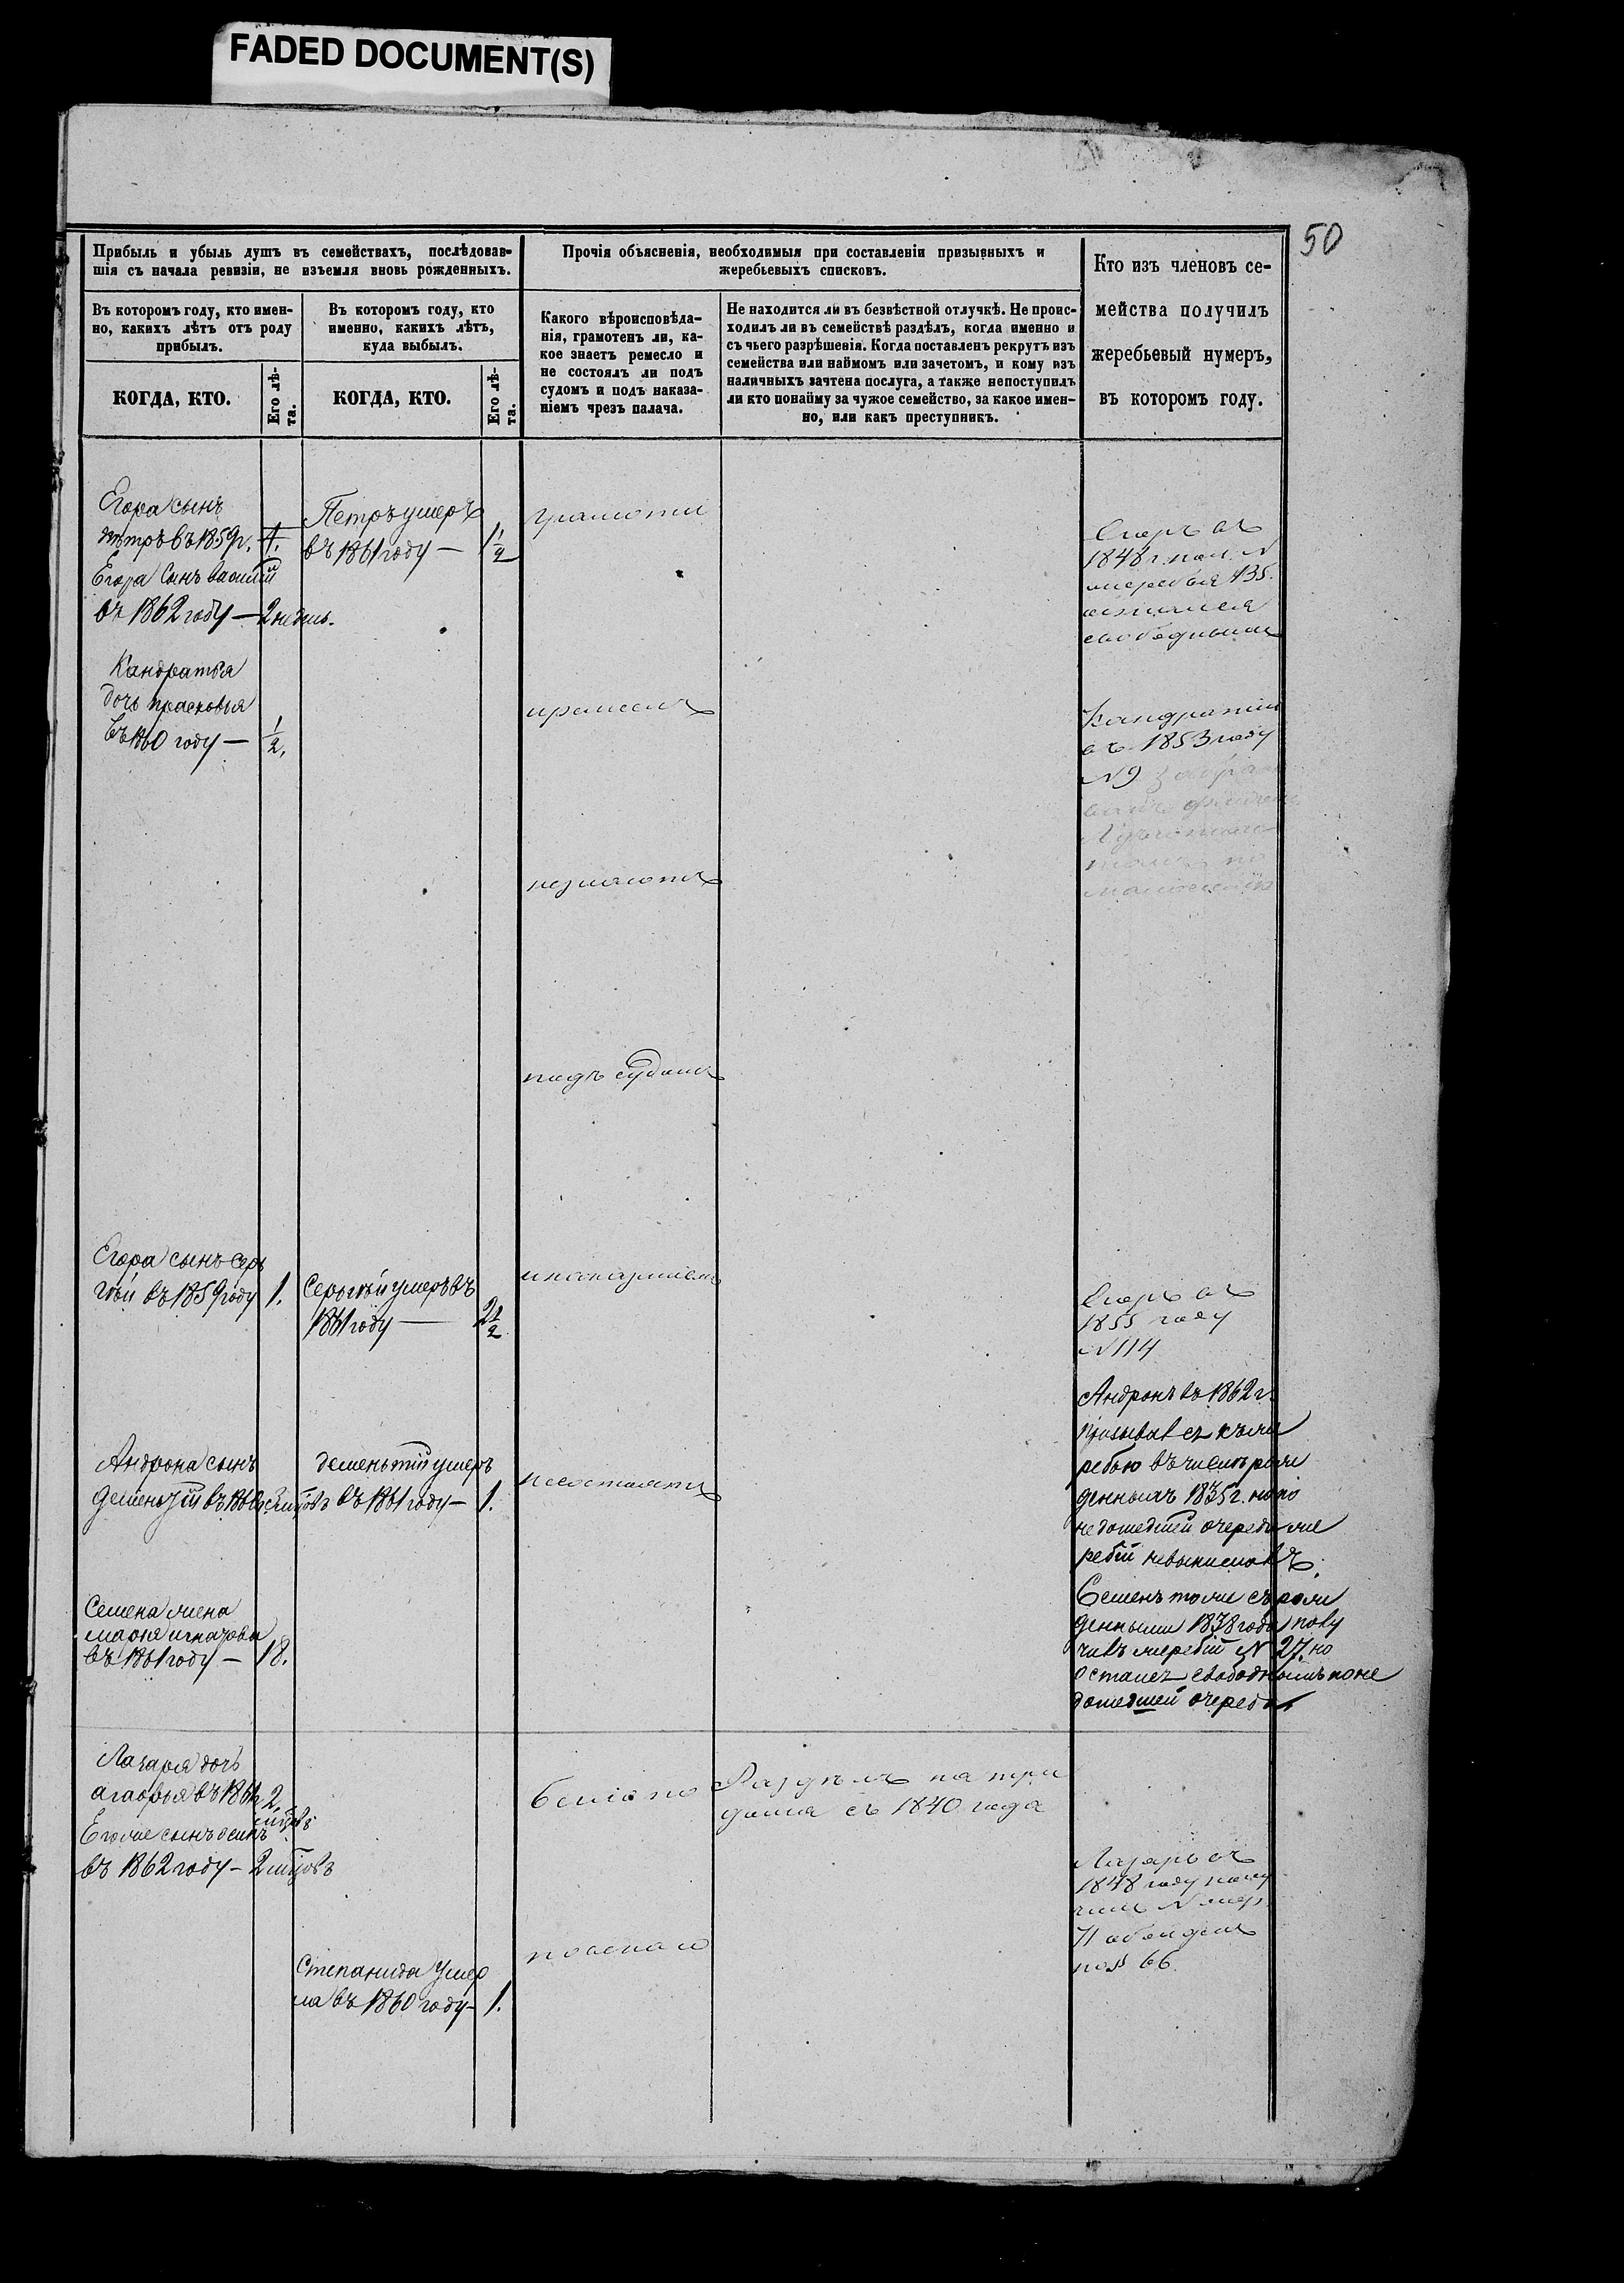 FADED DOCUMENT(S)
50
Прибыль и убыль душъ въ семействахъ, послѣдовав-
шія съ начала ревизіи, не изъемля вновь рожденныхъ.
Въ которомъ году, кто имен-
но, какихъ лѣтъ отъ роду
прибылъ.
КОГДА, КТО.
Его лѣ-
та.
Въ которомъ году, кто
именно, какихъ лѣтъ,
куда выбылъ.
КОГДА, КТО.
Его лѣ-
та.
Прочія объясненія, необходимыя при составленіи призывныхъ и
жеребьевыхъ списковъ.
Какого вѣроисповѣда-
нія, грамотенъ ли, ка-
кое знаетъ ремесло и
не состоялъ ли подъ
судомъ и подъ наказа-
ніемъ чрезъ палача.
Не находится ли въ безвѣстной отлучкѣ. Не проис-
ходилъ ли въ семействѣ раздѣлъ, когда именно и
съ чьего разрѣшенія. Когда поставленъ рекрутъ изъ
семейства или наймомъ или зачетомъ, и кому изъ
наличныхъ зачтена послуга, а также непоступилъ
ли кто понайму за чужое семейство, за какое имен-
но, или какъ преступникъ.
Кто изъ членовъ се-
мейства получилъ
жеребьевый нумеръ,
въ которомъ году.
Егора сынъ
петръ въ 1859 г.
Егора Сынъ василій
въ 1862 году — 2 недель.
Петръ умеръ
въ 1861 году — 1 1/2
грамоти
Егоръ въ
1848 г. пол. N
жеребья 135.
остался
свободнымъ
Кандратья
дочь прасковья
въ 1860 году — 1/2.
ремеслъ
Кандратій
въ 1853 году
N 9
по
незнаютъ
подъ судомъ
Егора сынъ Сер
гѣй въ 1859 году 1.
Сергѣй умеръ въ
1861 году — 2 1/2
и наказаніемъ
Егоръ въ
1855 году
N 114
Андронъ въ 1862 г.
призывался къ же
ребью въ числѣ рож
денныхъ 1835 г. но по
не дошедшей очереди же
ребій невынималъ.
Андрона сынъ
дементій въ 1860
дементій умеръ
въ 1861 году — 1.
несостоятъ
Семена жена
марья игнатова
въ 1861 году — 18.
Семенъ тоже съ рож
денными 1838 года полу
чивъ жеребій N 27. но
остался свободнымъ по не
дошедшей очереди
Лазаря дочь
агафья въ 1861 2
мѣцовъ
Егоже сынъ осипъ
въ 1862 году — 2 мѣцовъ
Раздѣлъ на три
дома съ 1840 года
Лазарь въ
1848 году полу
чилъ N жер.
по N 66
Степанида умер
ла въ 1860 году — 1.